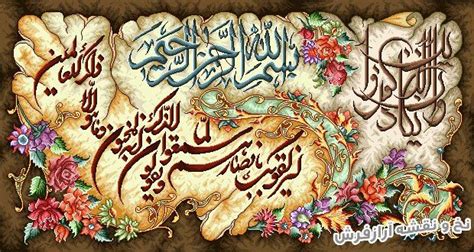 بسم الله الرحمن الرحیم
و ان یکاد الذین کفروا
لیزلقونک بابصارهم
لما سمعوا الذکر
و یقولون انه لمجنون
و ما هو الا
ذکر للعالمین
نخ و نقشه ارازفرش